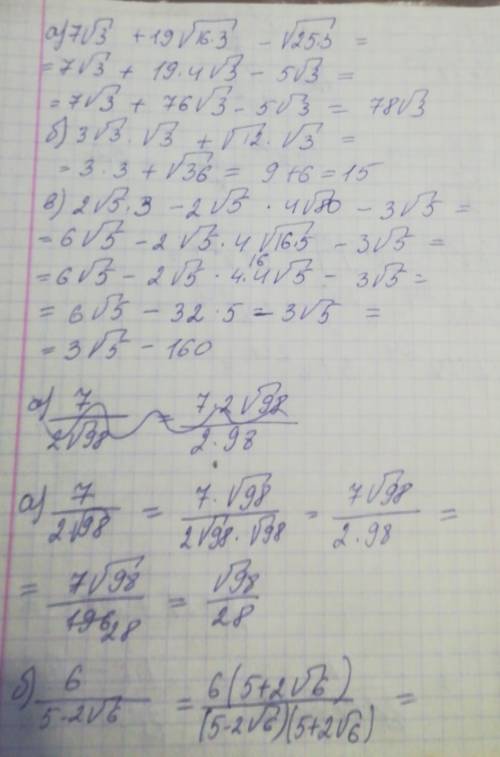 а) 7√3 + 19√16·3 − √25·3 =
= 7√3 + 19·4√3 − 5√3 =
= 7√3 + 76√3 − 5√3 = 78√3
б) 3√3 · √3 + √12 · √3 =
= 3·3 + √36 = 9+6 = 15
в) 2√5·3 − 2√5 · 4√80 − 3√5 =
= 6√5 − 2√5 · 4√16·5 − 3√5 =
= 6√5 − 2√5 · 4·4√5 − 3√5 =
= 6√5 − 32·5 − 3√5 =
= 3√5 − 160
а) 7/2√98 = 7·2√98/2·98
а) 7/2√98 = 7·√98/2√98·√98 = 7√98/2·98 =
= 7√98/196 28 = √98/28
б) 6/5-2√6 = 6(5+2√6)/(5-2√6)(5+2√6) =